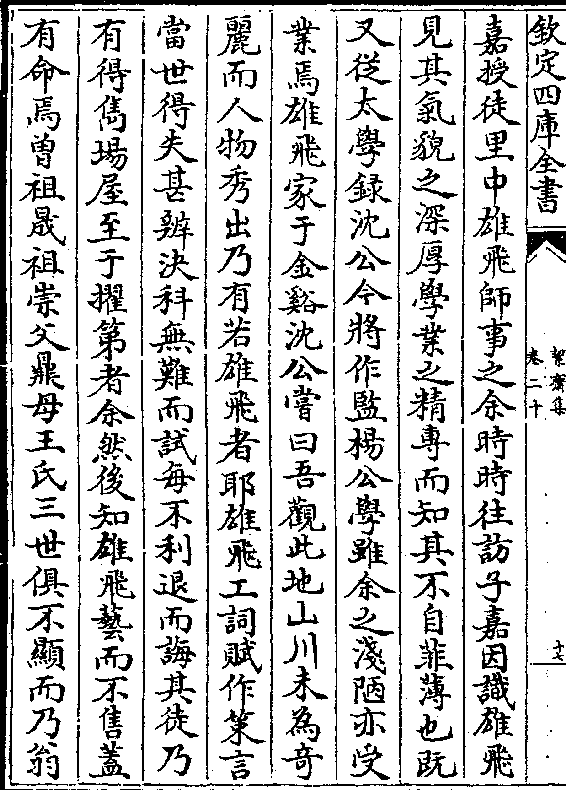 欽定四庫全書
絜齋集
卷二十
十七
嘉授徒里中雄飛師事之余時時往訪子嘉因識雄飛
見其氣貌之深厚學業之精專而知其不自菲薄也既
又從太學録沈公今將作監楊公學雖余之淺陋亦受
業焉雄飛家于金谿沈公嘗曰吾觀此地山川未為奇
麗而人物秀出乃有若雄飛者耶雄飛工詞賦作策言
當世得失甚辦決科無難而試每不利退而誨其徒乃
有得雋場屋至于擢第者余然後知雄飛藝而不售蓋
有命焉曾祖晟祖崇父鼎母王氏三世俱不顯而乃翁